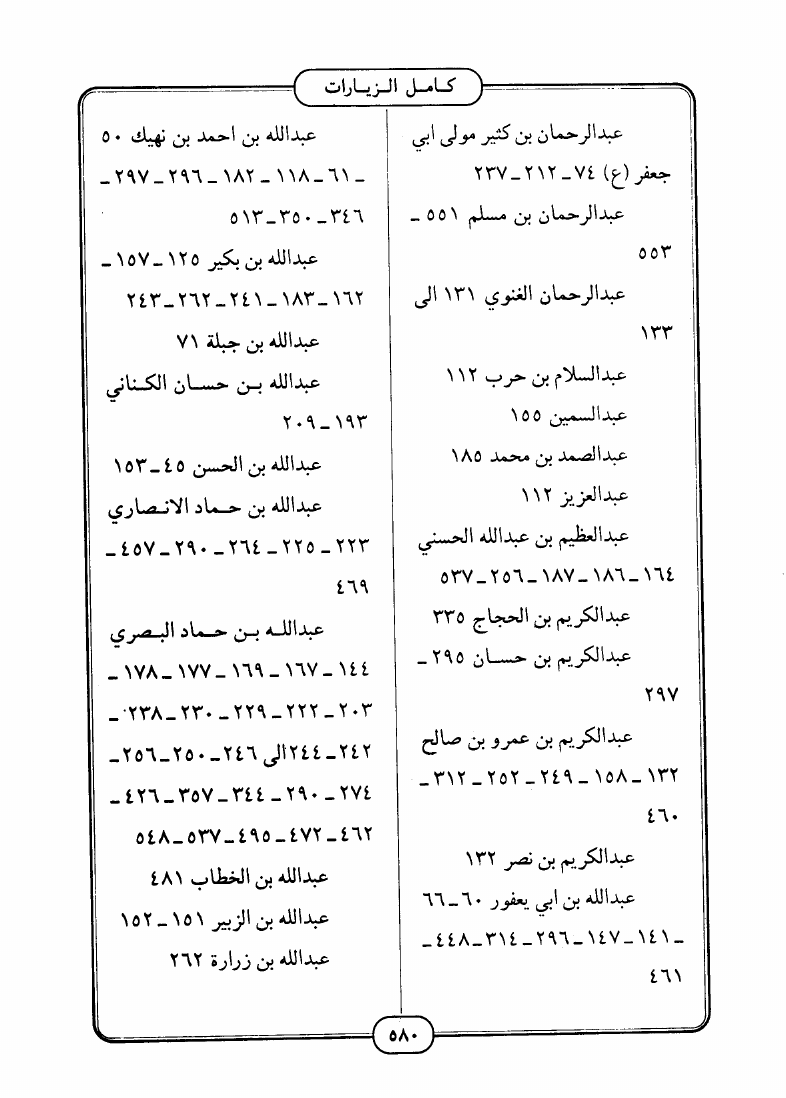 كامل الزيارات
عبدالرحمان بن كثير مولى ابي
جعفر (ع) ٧٤ـ٢١٢ـ٢٣٧
عبدالرحمان بن مسلم ٥٥١ ـ
٥٥٣
عبدالرحمان الغنوي ١٣١ الى
١٣٣
عبدالسلام بن حرب ١١٢
عبدالسمين ١٥٥
عبدالصمد بن محمد ١٨٥
عبدالعزيز ١١٢
عبدالعظيم بن عبدالله الحسني
١٦٤ـ١٨٦ـ١٨٧ـ٢٥٦ـ٥٣٧
عبدالكريم بن الحجاج ٣٣٥
عبدالكريم بن حسان ٢٩٥ ـ
٢٩٧
عبدالكريم بن عمرو بن صالح
١٣٢ـ١٥٨ـ٢٤٩ـ٢٥٢ـ٣١٢ـ
٤٦٠
عبدالكريم بن نصر ١٣٢
عبدالله بن ابي يعفور ٦٠ـ٦٦
ـ١٤١ـ١٤٧ـ٢٩٦ـ٣١٤ـ٤٤٨ـ
٤٦١
عبدالله بن احمد بن نهيك ٥٠
ـ٦١ـ١١٨ـ١٨٢ـ٢٩٦ـ٢٩٧ـ
٣٤٦ـ٣٥٠ـ٥١٣
عبدالله بن بكير ١٢٥ـ١٥٧ـ
١٦٢ـ١٨٣ـ٢٤١ـ٢٦٢ـ٢٤٣
عبدالله بن جبلة ٧١
عبدالله بـن حسـان الكـناني
١٩٣ـ٢٠٩
عبدالله بن الحسن ٤٥ـ١٥٣
عبدالله بن حـماد الانـصاري
٢٢٣ـ٢٢٥ـ٢٦٤ـ٢٩٠ـ٤٥٧ـ
٤٦٩
عبداللـه بـن حـماد البـصري
١٤٤ـ١٦٧ـ١٦٩ـ١٧٧ـ١٧٨ـ
٢٠٣ـ٢٢٢ـ٢٢٩ـ٢٣٠ـ٢٣٨ـ
٢٤٢ـ٢٤٤الى ٢٤٦ـ٢٥٠ـ٢٥٦ـ
٢٧٤ـ٢٩٠ـ٣٤٤ـ٣٥٧ـ٤٢٦ـ
٤٦٢ـ٤٧٢ـ٤٩٥ـ٥٣٧ـ٥٤٨
عبدالله بن الخطاب ٤٨١
عبدالله بن الزبير ١٥١ـ١٥٢
عبدالله بن زرارة ٢٦٢
٥٨٠